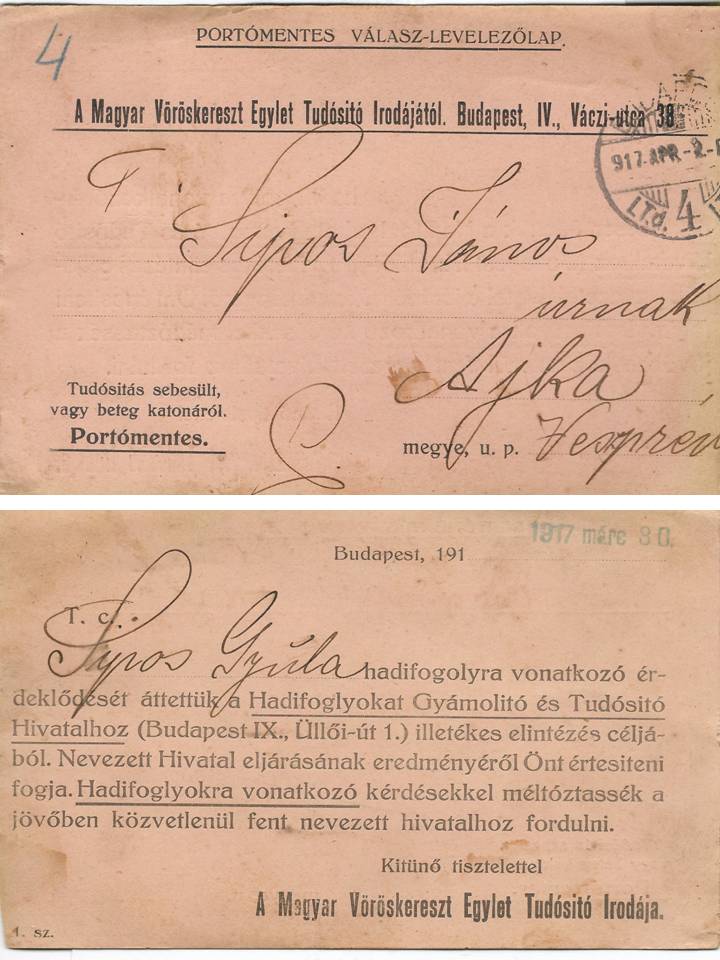 4
PORTÓMENTES VÁLASZ-LEVELEZŐLAP.
A Magyar Vöröskereszt Egylet Tudósitó Irodájától. Budapest, IV., Váczi-utca 38
917 APR -2
4
T.
Sipos János
úrnak
Ajka
Tudósitás sebesült,
vagy beteg katonáról.
Portómentes.
megye, u. p. Veszprém
1917 márc 30.
Budapest, 191
T. c.
Sipos Gyúla hadifogolyra vonatkozó ér-
deklődését áttettük a Hadifoglyokat Gyámolitó és Tudósitó
Hivatalhoz (Budapest IX., Üllői-út 1.) illetékes elintézés céljá-
ból. Nevezett Hivatal eljárásának eredményéről Önt értesiteni
fogja. Hadifoglyokra vonatkozó kérdésekkel méltóztassék a
jövőben közvetlenül fent nevezett hivatalhoz fordulni.
Kitünő tisztelettel
A Magyar Vöröskereszt Egylet Tudósitó Irodája.
1. sz.